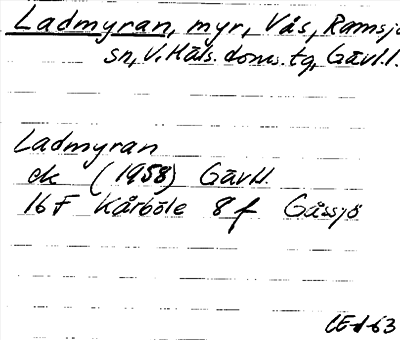 Ladmyran, myr, Vås, Ramsjö
sn, V. Häls. doms. tg, Gävl.l.
Ladmyran
ek (1958) Gävl.l.
16 F Kårböle 8 f Gåssjö